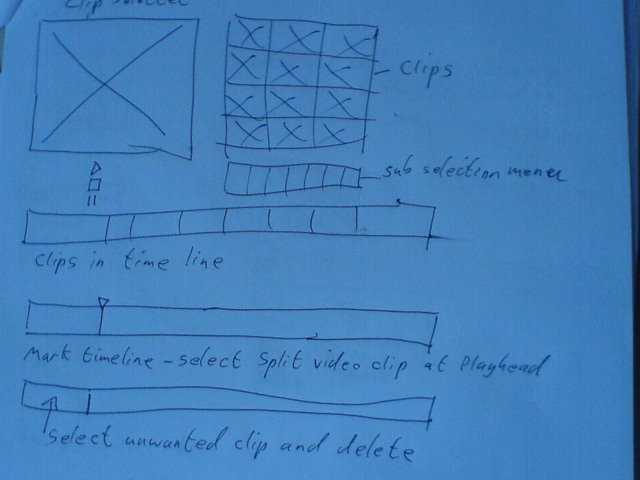 Clips
sub selection menu
Clips in time line
Mark timeline - select Split video clip at Playhead
Select unwanted clip and delete